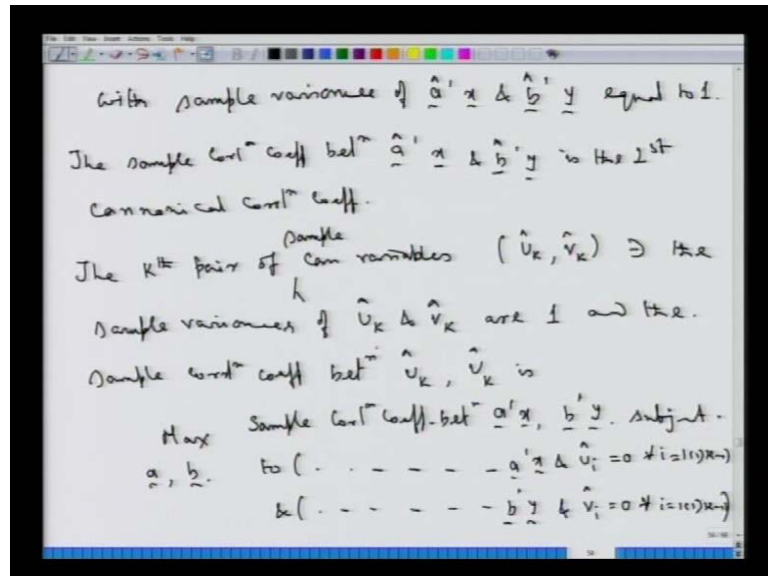 with sample variances of â' x & b̂' y equal to 1.
The sample corrⁿ coeff betⁿ â' x & b̂' y is the 1st
cannonical corrⁿ coeff.
sample
The Kth pair of can variables (Û_K, V̂_K) ∋ the
sample variances of Û_K & V̂_K are 1 and the.
sample corrⁿ coeff betⁿ Û_K, V̂_K is
Max Sample Corrⁿ Coeff. betⁿ a'x, b'y. subject.
a, b. to ( . - - - - - a'x & Û_i = 0 ∀ i=1(1)K-1)
&( . . - - - - b'y & V̂_i = 0 ∀ i=1(1)K-1)